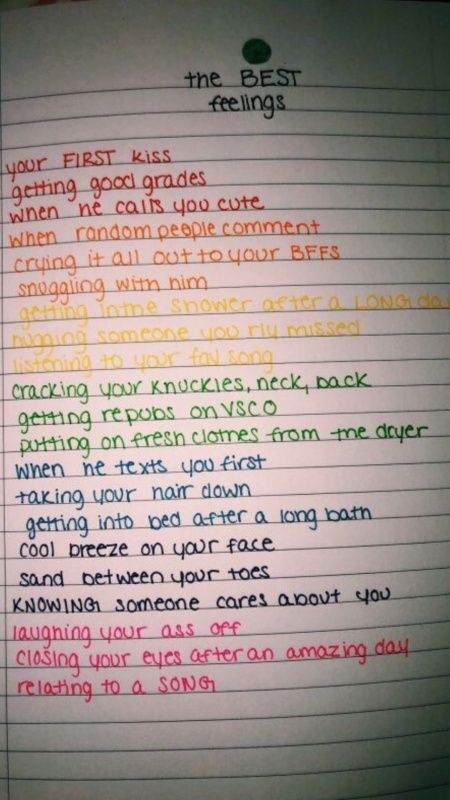 the BEST
feelings
your FIRST kiss
getting good grades
when he calls you cute
when random people comment
crying it all out to your BFFS
snuggling with him
getting in the shower after a LONG da
hugging someone you rly missed
listening to your fav song
cracking your knuckles, neck, back
getting repubs on VSCO
putting on fresh clothes from the dryer
when he texts you first
taking your hair down
getting into bed after a long bath
cool breeze on your face
sand between your toes
KNOWING someone cares about you
laughing your ass off
closing your eyes after an amazing day
relating to a SONG